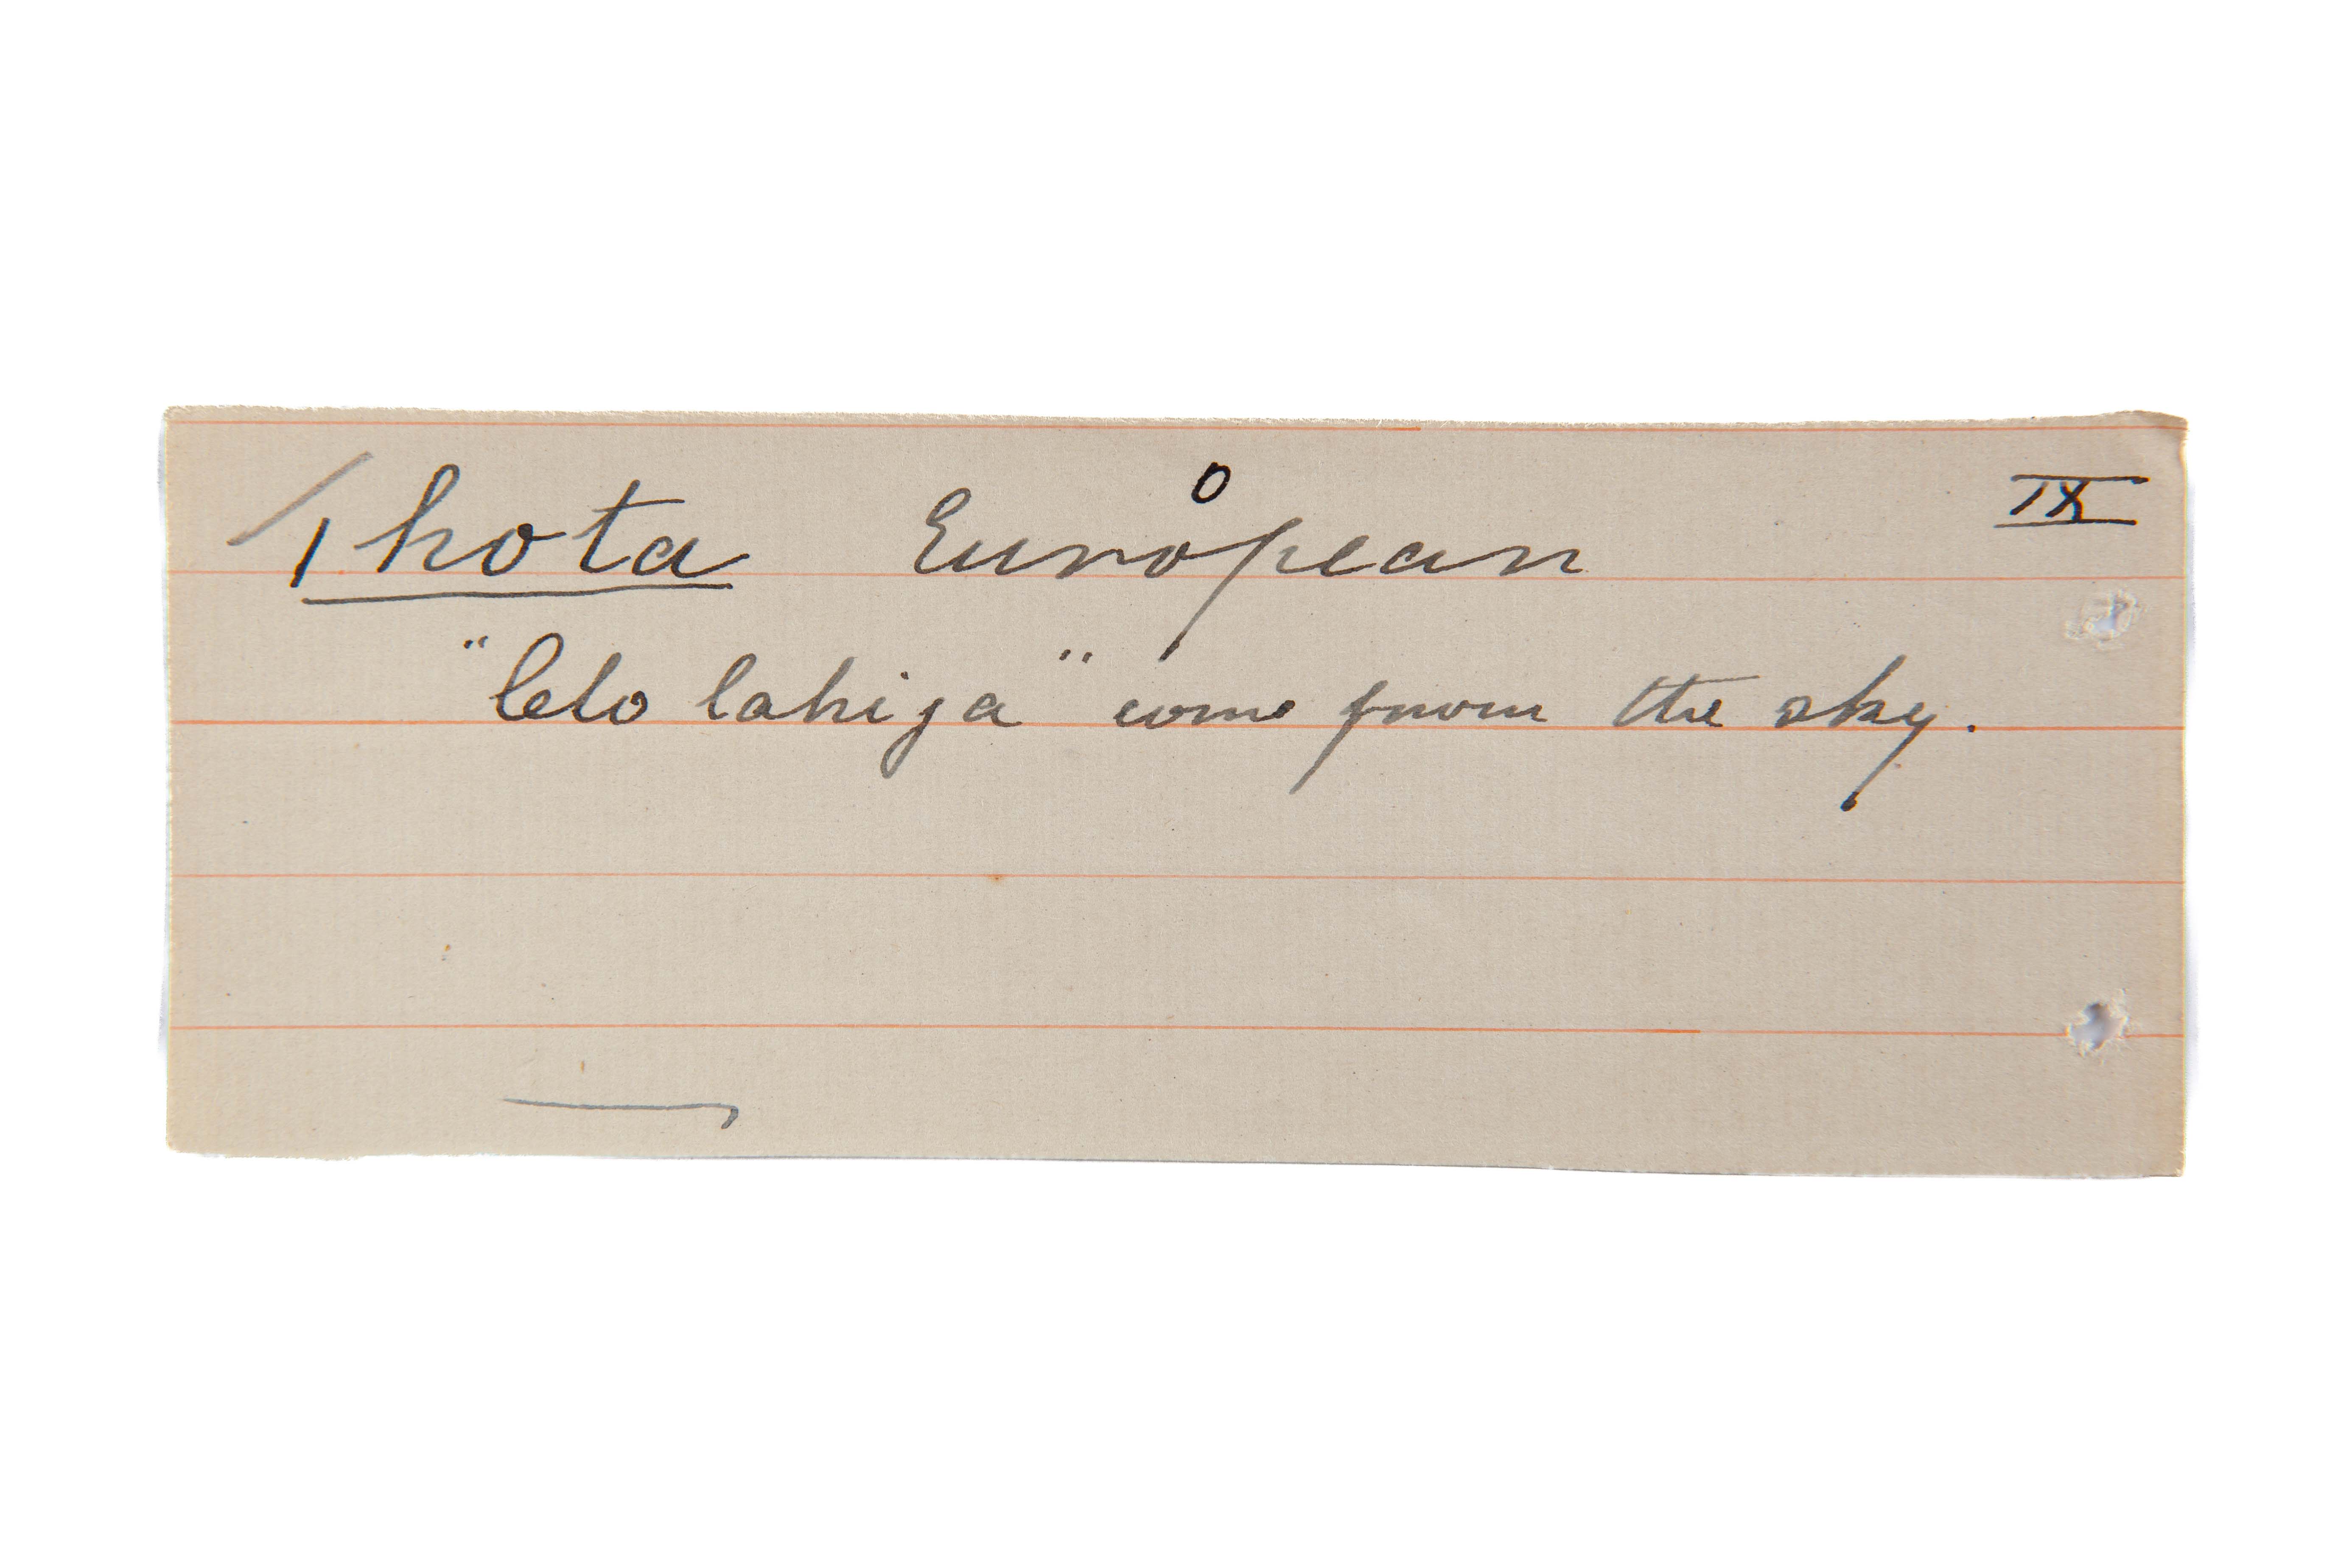 /hota European IX
"lelo lahiga" come from the sky.